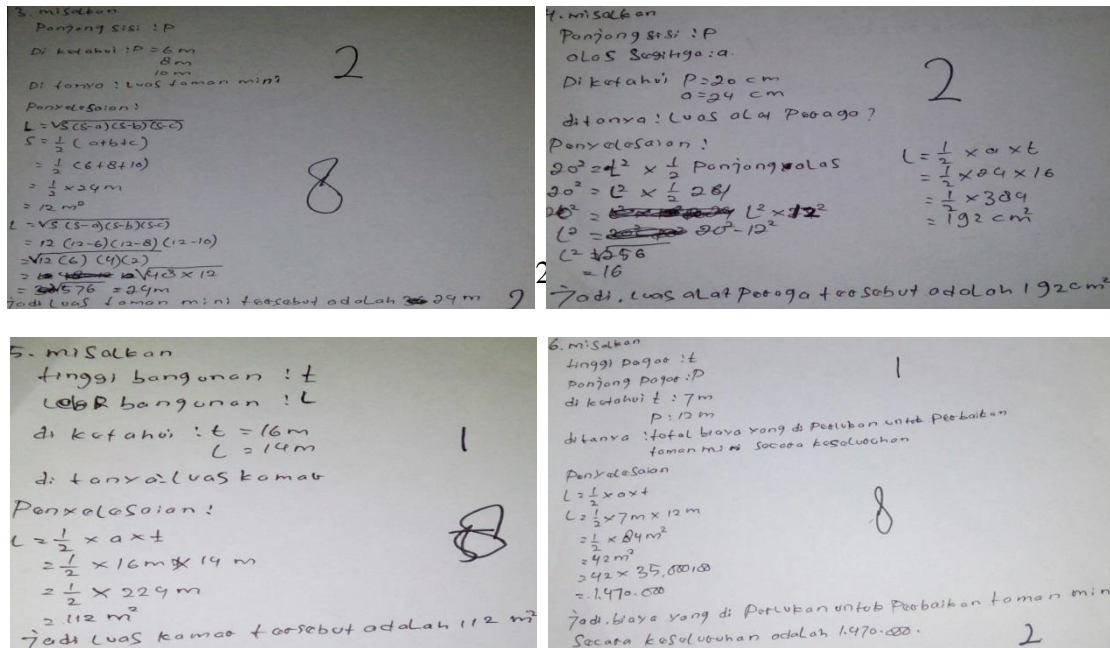 3. misalkan
Panjang sisi : P
Di ketahui : P = 6 m
8 m
10 m
2
Di tanya : Luas taman mini
Penyelesaian :
L = √S(S-a)(S-b)(S-c)
S = 1/2 (a+b+c)
= 1/2 (6+8+10)
= 1/2 × 24 m
= 12 m²
8
L = √S (S-a)(S-b)(S-c)
= 12 (12-6)(12-8)(12-10)
= √12 (6) (4)(2)
= √48 × 12
= √576 = 24m
Jadi Luas taman mini tersebut adalah 24 m
2
2
4. misalkan
Panjang sisi : P
alas segitiga : a
Diketahui P = 20 cm
a = 24 cm
2
ditanya : Luas alat Peraga ?
Penyelesaian :
20² = L² × 1/2 Panjang alas
20² = L² × 1/2 
20² = L² × 12²
L² = 20² - 12²
L² = √256
= 16
L = 1/2 × a × t
= 1/2 × 24 × 16
= 1/2 × 384
= 192 cm²
Jadi, Luas alat Peraga tersebut adalah 192 cm²
5. misalkan
tinggi bangunan : t
Lebar bangunan : L
di ketahui : t = 16m
L = 14m
1
di tanya : Luas kamar
Penyelesaian :
L = 1/2 × a × t
= 1/2 × 16m × 14 m
= 1/2 × 224 m
= 112 m²
8
Jadi Luas kamar tersebut adalah 112 m²
6. misalkan
tinggi Pagar : t
Panjang Pagar : P
di ketahui t : 7m
P : 12 m
1
ditanya : total biaya yang di Perlukan untuk Perbaikan
taman mini secara keseluruhan
Penyelesaian
L = 1/2 × a × t
L = 1/2 × 7 m × 12 m
= 1/2 × 84 m²
= 42 m²
= 42 × 35,000,00
= 1.470.000
8
Jadi, biaya yang di Perlukan untuk Perbaikan taman min
Secara keseluruhan adalah 1.470.000.
2